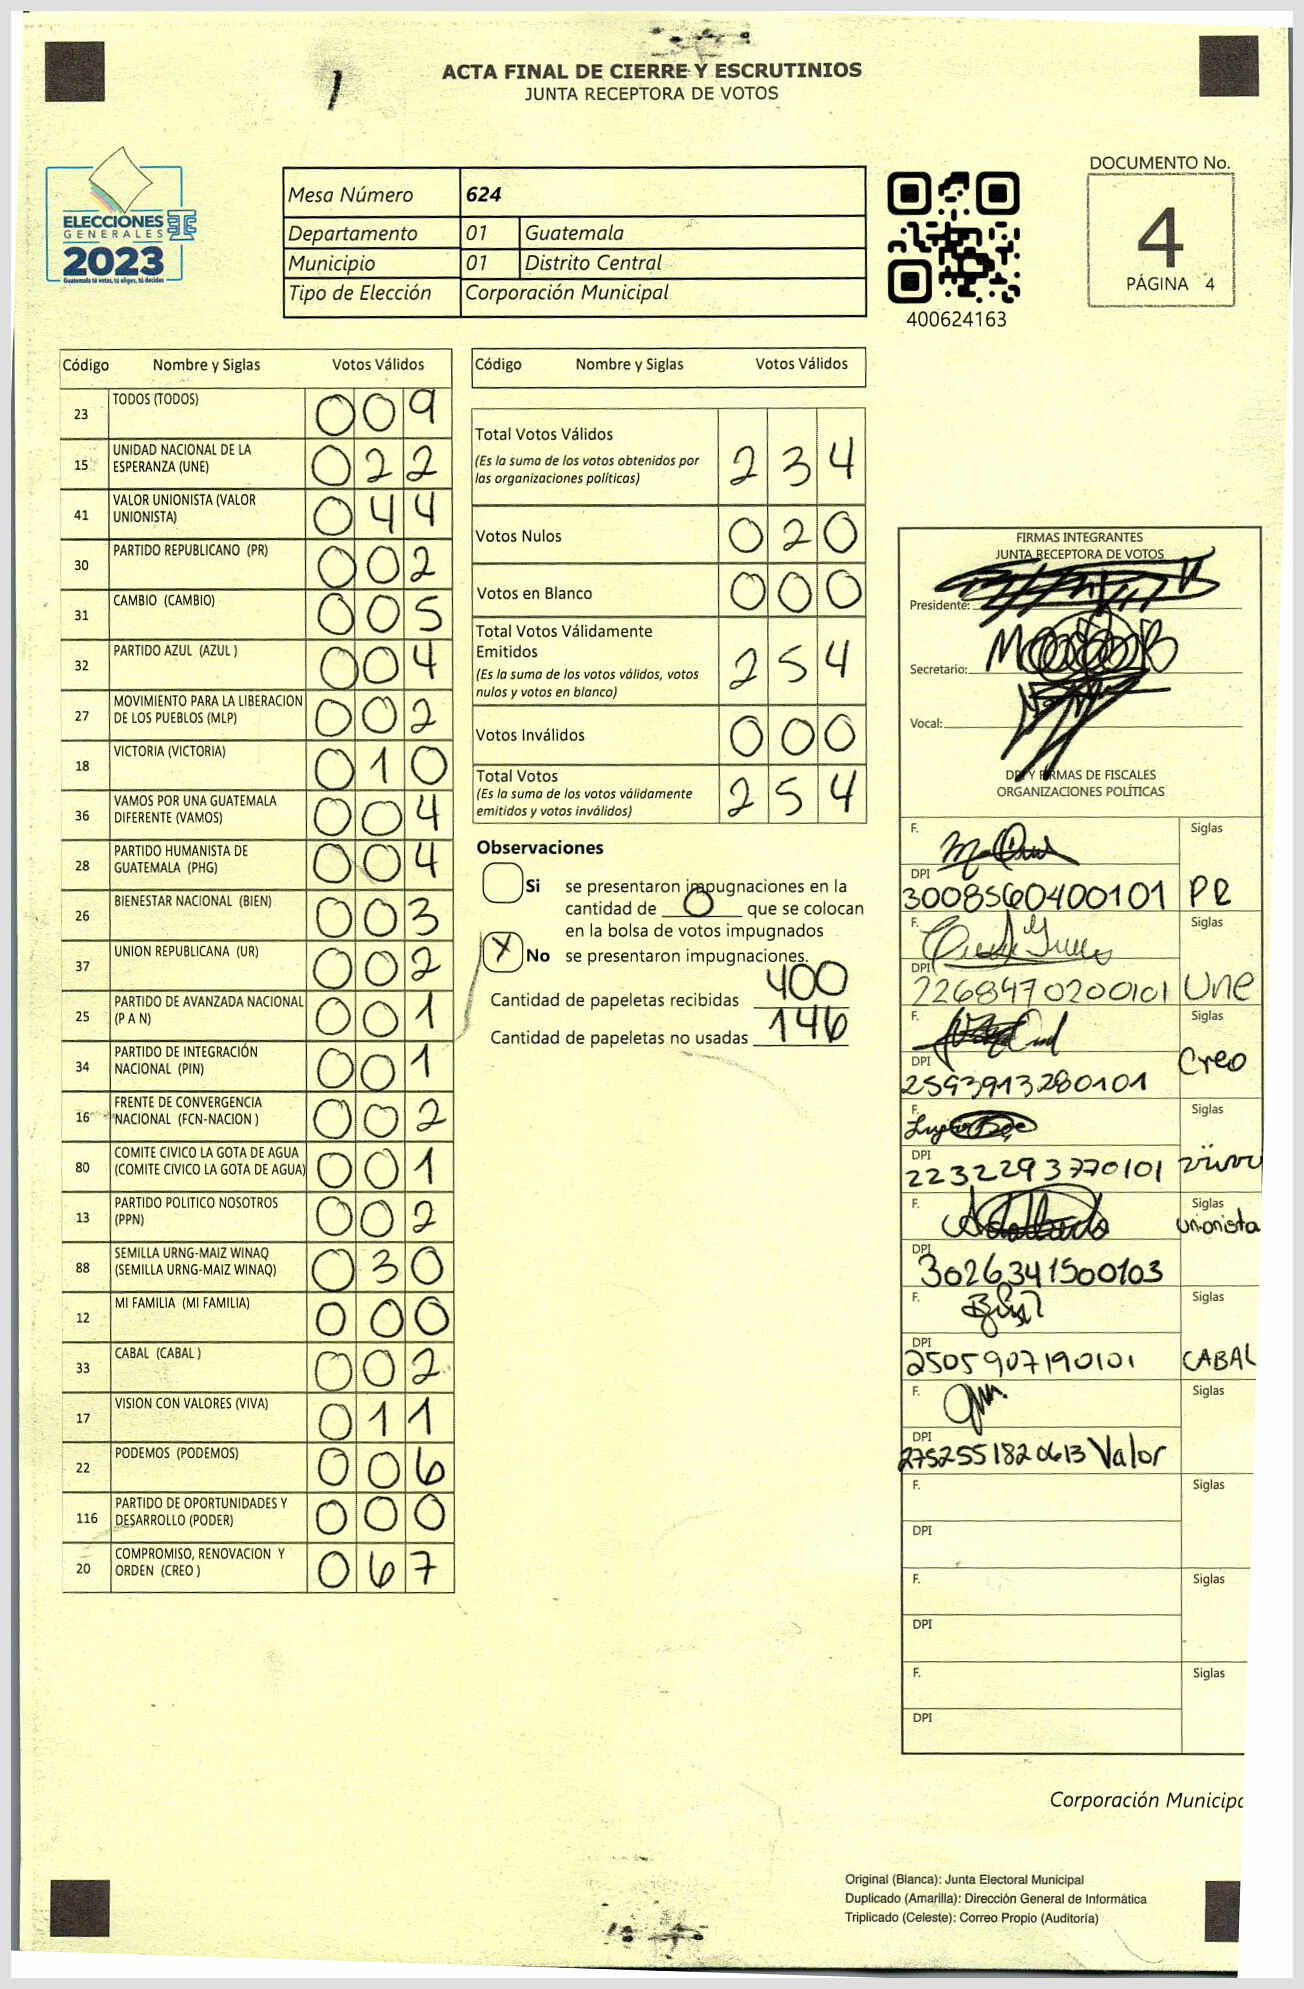 ACTA FINAL DE CIERRE Y ESCRUTINIOS
JUNTA RECEPTORA DE VOTOS
1
ELECCIONES
GENERALES
2023
Guatemala tú votas, tú eliges, tú decides
Mesa Número 624
Departamento 01 Guatemala
Municipio 01 Distrito Central
Tipo de Elección Corporación Municipal
400624163
DOCUMENTO No.
4
PÁGINA 4
Código Nombre y Siglas Votos Válidos
23 TODOS (TODOS) 009
15 UNIDAD NACIONAL DE LA ESPERANZA (UNE) 022
41 VALOR UNIONISTA (VALOR UNIONISTA) 044
30 PARTIDO REPUBLICANO (PR) 002
31 CAMBIO (CAMBIO) 005
32 PARTIDO AZUL (AZUL ) 004
27 MOVIMIENTO PARA LA LIBERACION DE LOS PUEBLOS (MLP) 002
18 VICTORIA (VICTORIA) 010
36 VAMOS POR UNA GUATEMALA DIFERENTE (VAMOS) 004
28 PARTIDO HUMANISTA DE GUATEMALA (PHG) 004
26 BIENESTAR NACIONAL (BIEN) 003
37 UNION REPUBLICANA (UR) 002
25 PARTIDO DE AVANZADA NACIONAL (P A N) 001
34 PARTIDO DE INTEGRACIÓN NACIONAL (PIN) 001
16 FRENTE DE CONVERGENCIA NACIONAL (FCN-NACION ) 002
80 COMITE CIVICO LA GOTA DE AGUA (COMITE CIVICO LA GOTA DE AGUA) 001
13 PARTIDO POLITICO NOSOTROS (PPN) 002
88 SEMILLA URNG-MAIZ WINAQ (SEMILLA URNG-MAIZ WINAQ) 030
12 MI FAMILIA (MI FAMILIA) 000
33 CABAL (CABAL ) 002
17 VISION CON VALORES (VIVA) 011
22 PODEMOS (PODEMOS) 006
116 PARTIDO DE OPORTUNIDADES Y DESARROLLO (PODER) 000
20 COMPROMISO, RENOVACION Y ORDEN (CREO ) 067
Código Nombre y Siglas Votos Válidos
Total Votos Válidos 234
(Es la suma de los votos obtenidos por
las organizaciones políticas)
Votos Nulos 020
Votos en Blanco 000
Total Votos Válidamente
Emitidos 254
(Es la suma de los votos válidos, votos
nulos y votos en blanco)
Votos Inválidos 000
Total Votos 254
(Es la suma de los votos válidamente
emitidos y votos inválidos)
Observaciones
Si se presentaron impugnaciones en la
cantidad de 0 que se colocan
en la bolsa de votos impugnados
X No se presentaron impugnaciones.
Cantidad de papeletas recibidas 400
Cantidad de papeletas no usadas 146
FIRMAS INTEGRANTES
JUNTA RECEPTORA DE VOTOS
Presidente:
Secretario:
Vocal:
DPI Y FIRMAS DE FISCALES
ORGANIZACIONES POLÍTICAS
F. Siglas
DPI
3008560400101 PR
F. Siglas
DPI
2268970200101 Une
F. Siglas
DPI Creo
2593913280101
F. Siglas
DPI
2232293770101
F. Siglas
unionista
DPI
3026341500103
F. Siglas
DPI
2505907190101 CABAL
F. Siglas
DPI
2752551820613 Valor
F. Siglas
DPI
F. Siglas
DPI
F. Siglas
DPI
Corporación Municipa
Original (Blanca): Junta Electoral Municipal
Duplicado (Amarilla): Dirección General de Informática
Triplicado (Celeste): Correo Propio (Auditoría)